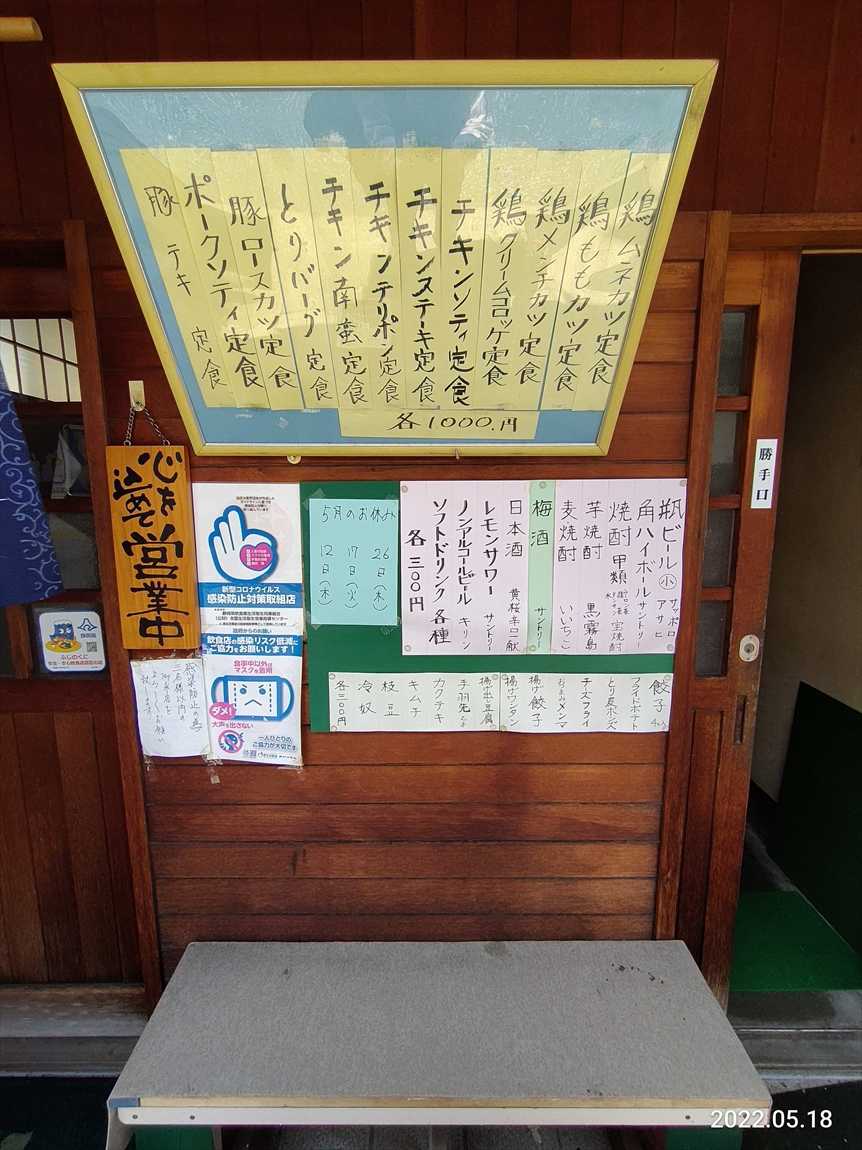 鶏ムネカツ定食
鶏ももカツ定食
鶏メンチカツ定食
鶏クリームコロッケ定食
チキンソティ定食
チキンステーキ定食
チキンテリポン定食
チキン南蛮定食
とりバーグ定食
豚ロースカツ定食
ポークソティ定食
豚テキ定食
各1000.円
勝手口
心を
込めて
営業中
新型コロナウイルス
感染防止対策取組店
政府からのお願い
飲食店の感染リスク低減に
ご協力をお願いします!
食事中以外は
マスクを着用
ダメ!
大声を出さない
一人ひとりの
ご協力が大切です
感染防止の為
三名様以内の
5月のお休み
26日(木)
17日(火)
12日(木)
瓶ビール小 サッポロ アサヒ
角ハイボール サントリー
焼酎甲類 宝焼酎
芋焼酎 黒霧島
麦焼酎 いいちこ
梅酒 サントリー
日本酒 黄桜辛口一献
レモンサワー サントリー
ノンアルコールビール キリン
ソフトドリンク各種
各三〇〇円
餃子
フライドポテト
とり皮ポンズ
チーズフライ
おつまみメンマ
揚げ餃子
揚げワンタン
揚げ出し豆腐
手羽先
カクテキ
キムチ
枝豆
冷奴
各三〇〇円
ふじのくに
2022.05.18